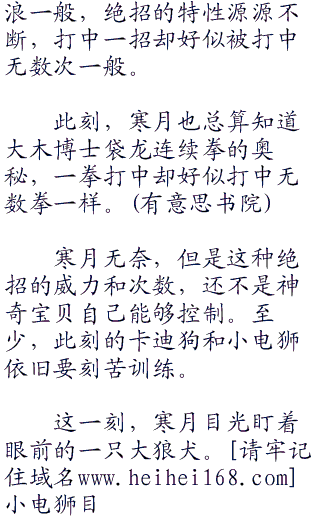 浪一般，绝招的特性源源不
断，打中一招却好似被打中
无数次一般。
此刻，寒月也总算知道
大木博士袋龙连续拳的奥
秘，一拳打中却好似打中无
数拳一样。(有意思书院)
寒月无奈，但是这种绝
招的威力和次数，还不是神
奇宝贝自己能够控制。至
少，此刻的卡迪狗和小电狮
依旧要刻苦训练。
这一刻，寒月目光盯着
眼前的一只大狼犬。[请牢记
住域名www.heihei168.com]
小电狮目